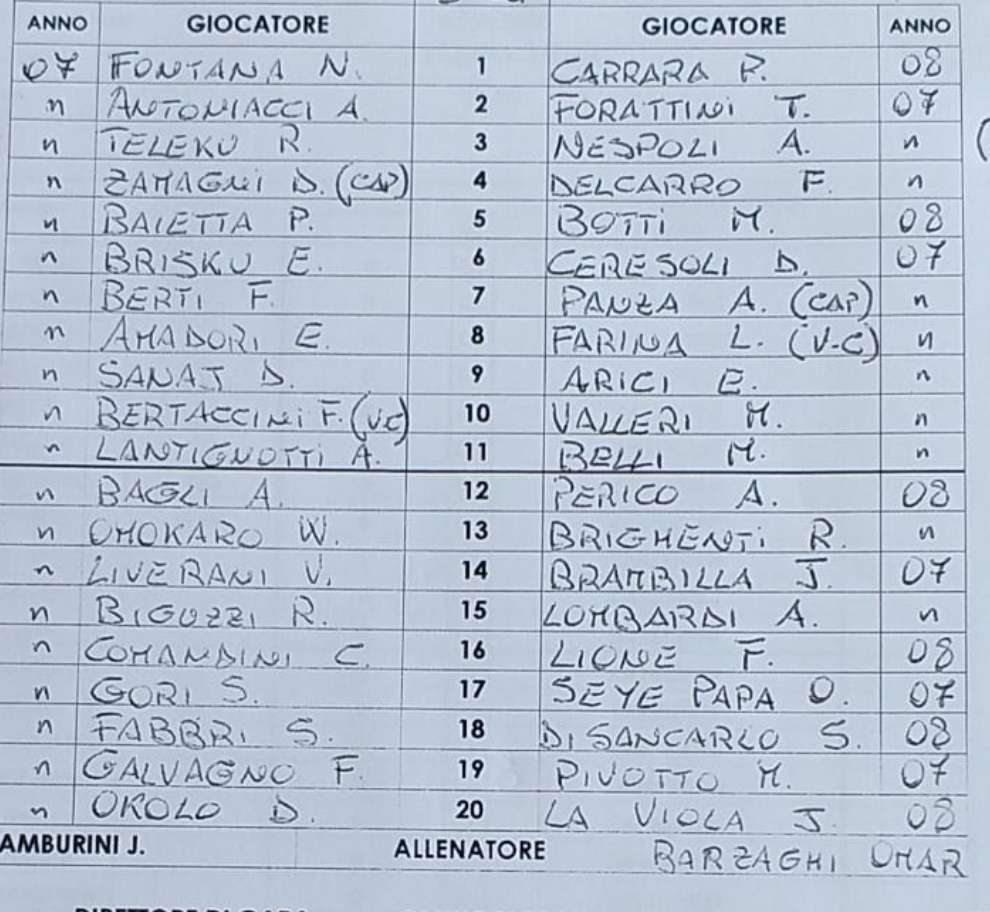 ANNO GIOCATORE GIOCATORE ANNO
07 FONTANA N. 1 CARRARA P. 08
n ANTONIACCI A. 2 FORATTINI T. 07
n TELEKU R. 3 NESPOLI A. n
n ZAMAGNI D. (CAP) 4 DELCARRO F. n
n BAIETTA P. 5 BOTTI M. 08
n BRISKU E. 6 CERESOLI D. 07
n BERTI F. 7 PANZA A. (CAP) n
n AMADORI E. 8 FARINA L. (V-C) n
n SANAJ D. 9 ARICI E. n
n BERTACCINI F. (V.C) 10 VALLERI M. n
n LANTIGNOTTI A. 11 BELLI M. n
n BAGLI A. 12 PERICO A. 08
n OMOKARO W. 13 BRIGHENTI R. n
n LIVERANI V. 14 BRAMBILLA J. 07
n BIGUZZI R. 15 LOMBARDI A. n
n COMANDINI C. 16 LIONE F. 08
n GORI S. 17 SEYE PAPA O. 07
n FABBRI S. 18 DI SANCARLO S. 08
n GALVAGNO F. 19 PIVOTTO M. 07
n OKOLO D. 20 LA VIOLA J. 08
AMBURINI J. ALLENATORE BARZAGHI OMAR